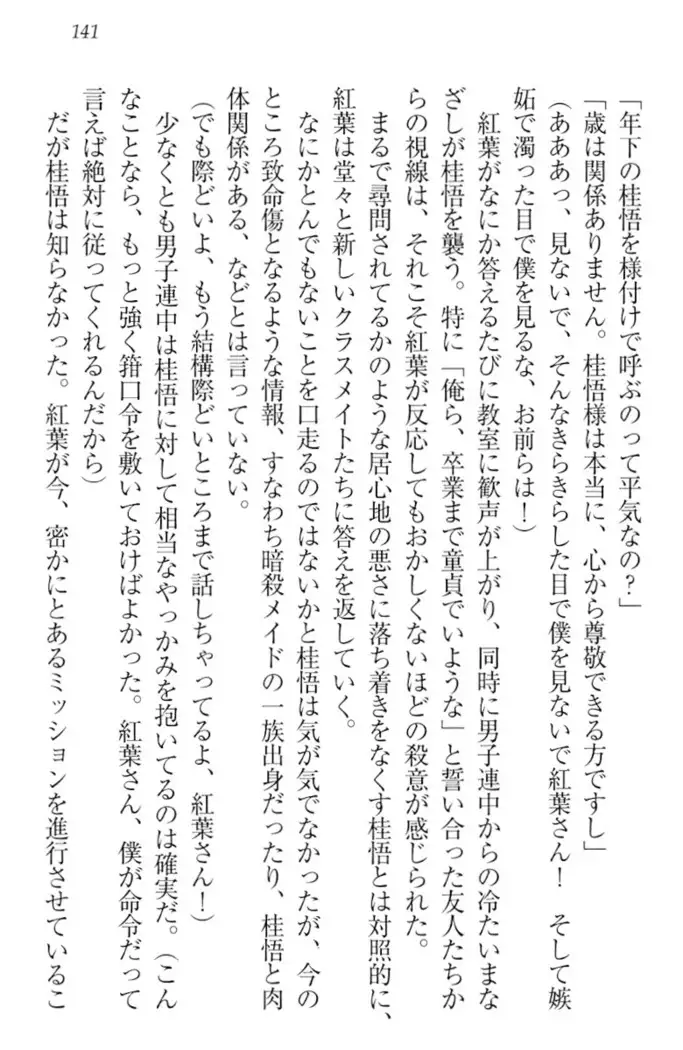 141
「年下の桂悟を様付けで呼ぶのって平気なの？」
「歳は関係ありません。桂悟様は本当に、心から尊敬できる方ですし」
（あああっ、見ないで、そんなきらきらした目で僕を見ないで紅葉さん！　そして嫉
妬で濁った目で僕を見るな、お前らは！）
紅葉がなにか答えるたびに教室に歓声が上がり、同時に男子連中からの冷たいまな
ざしが桂悟を襲う。特に「俺ら、卒業まで童貞でいような」と誓い合った友人たちか
らの視線は、それこそ紅葉が反応してもおかしくないほどの殺意が感じられた。
まるで尋問されてるかのような居心地の悪さに落ち着きをなくす桂悟とは対照的に、
紅葉は堂々と新しいクラスメイトたちに答えを返していく。
なにかとんでもないことを口走るのではないかと桂悟は気が気でなかったが、今の
ところ致命傷となるような情報、すなわち暗殺メイドの一族出身だったり、桂悟と肉
体関係がある、などとは言っていない。
（でも際どいよ、もう結構際どいところまで話しちゃってるよ、紅葉さん！）
少なくとも男子連中は桂悟に対して相当なやっかみを抱いてるのは確実だ。（こん
なことなら、もっと強く箝口令を敷いておけばよかった。紅葉さん、僕が命令だって
言えば絶対に従ってくれるんだから）
だが桂悟は知らなかった。紅葉が今、密かにとあるミッションを進行させているこ